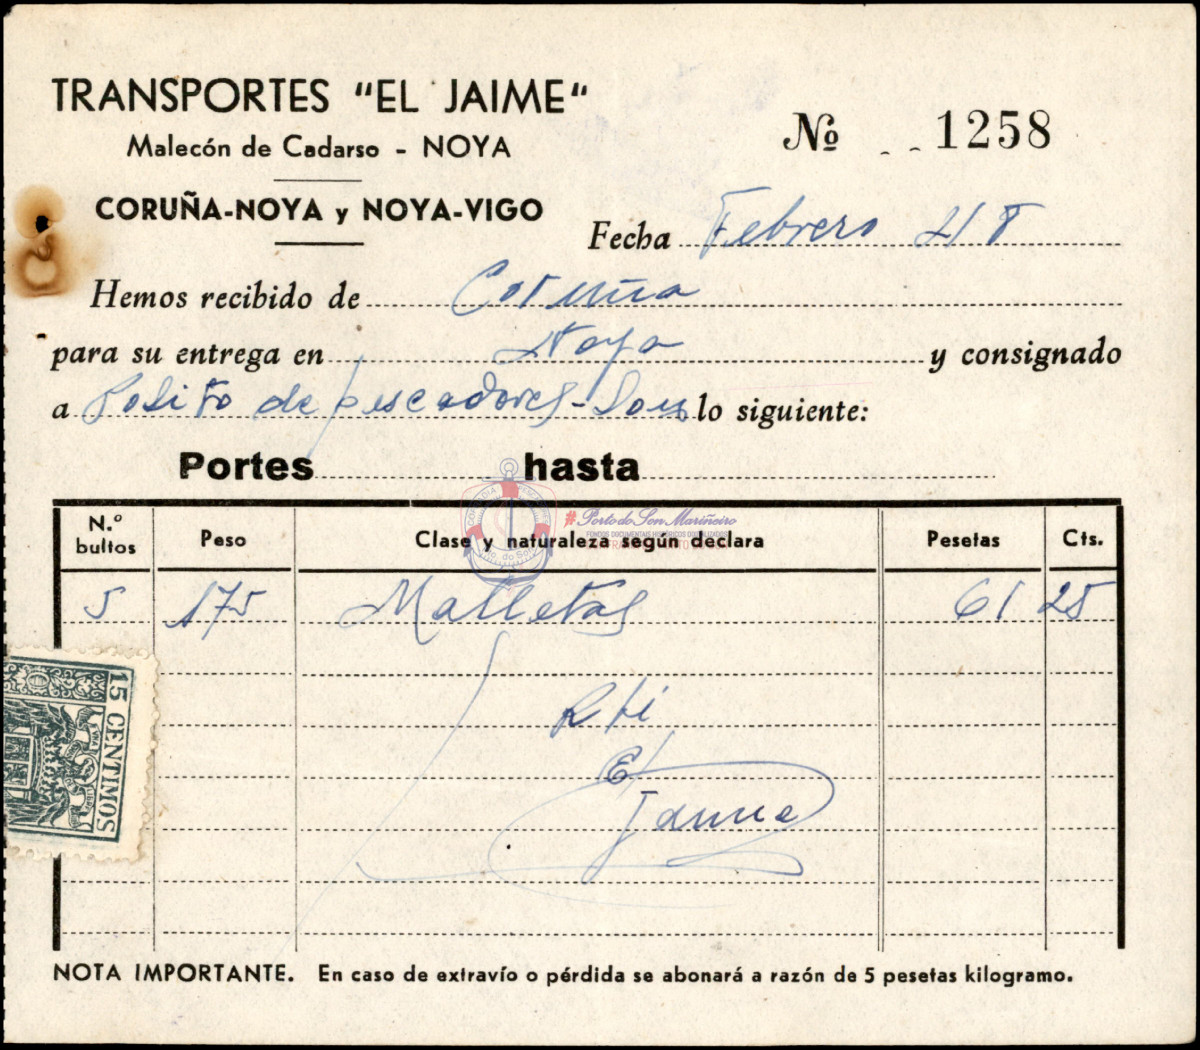 TRANSPORTES "EL JAIME"
Malecón de Cadarso - NOYA
CORUÑA-NOYA y NOYA-VIGO
Nº 1258
Fecha Febrero 4/8
Hemos recibido de Coruña
para su entrega en Noya y consignado
a Posito de pescadores - Son lo siguiente:
Portes hasta
N.º bultos Peso Clase y naturaleza según declara Pesetas Cts.
5 175 Malletas 61 25
El
Jaime
15 CENTIMOS
#Porto do Son Mariñeiro
NOTA IMPORTANTE. En caso de extravío o pérdida se abonará a razón de 5 pesetas kilogramo.